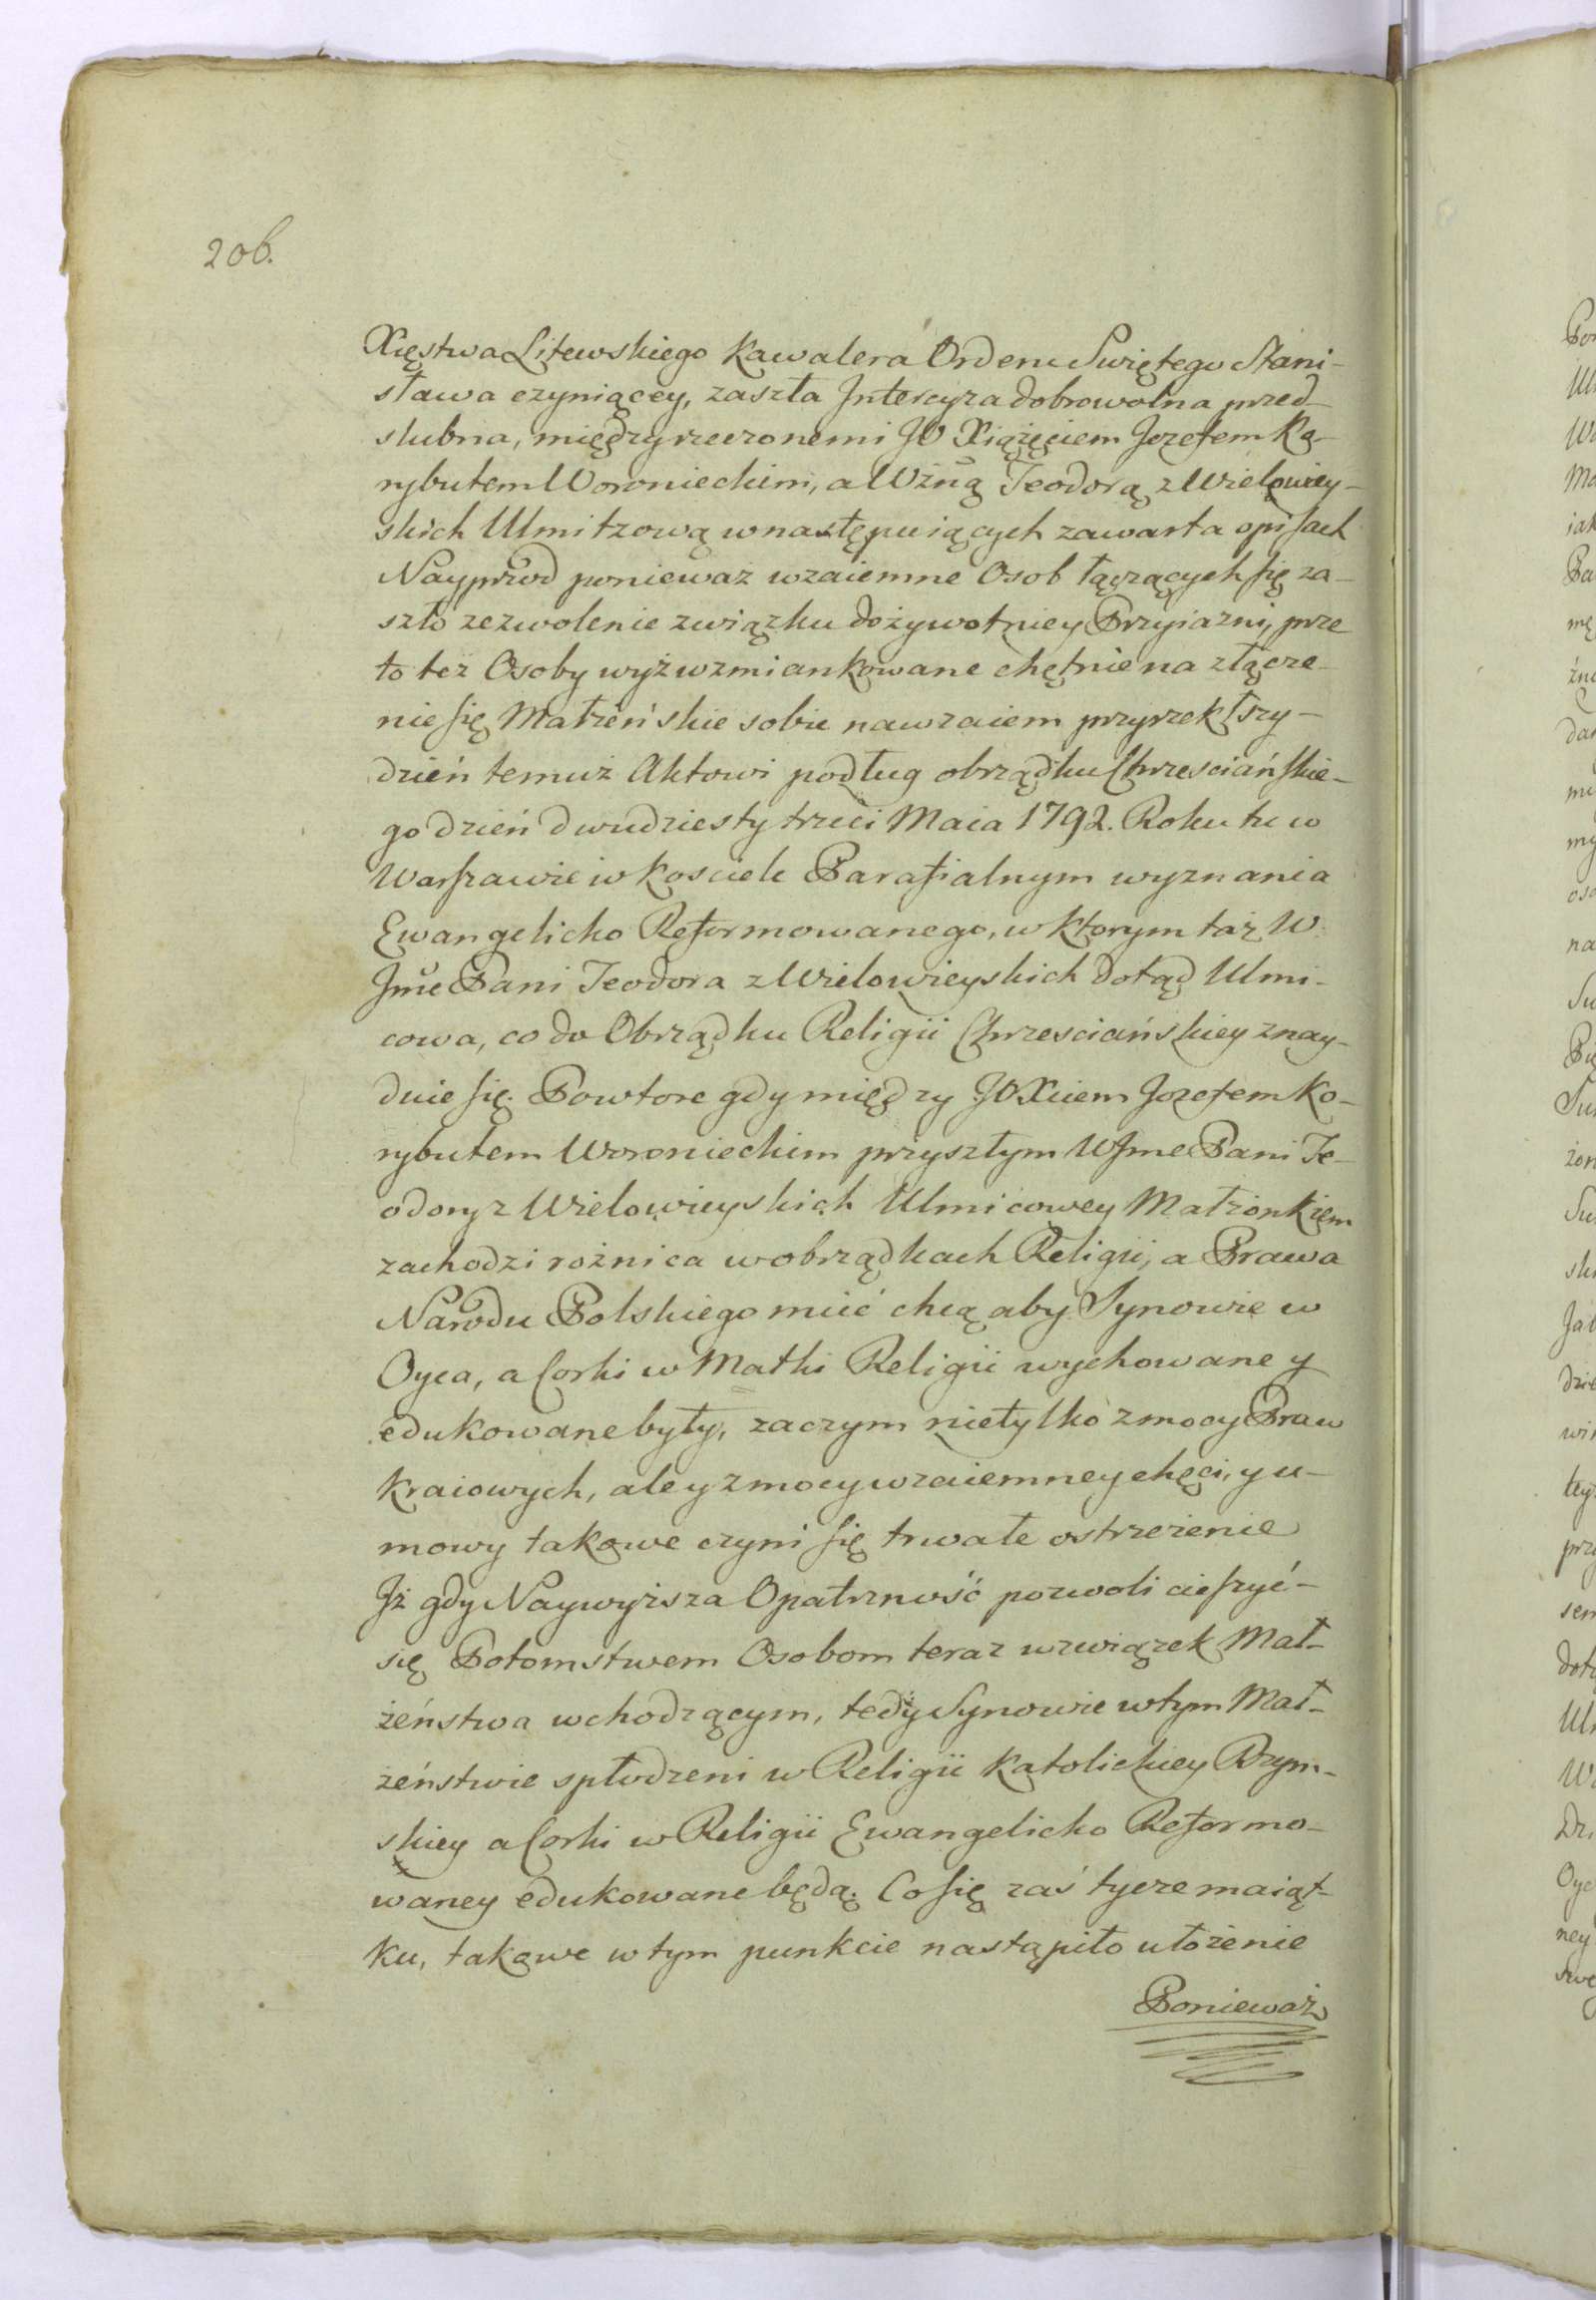 206.
Xięstwa Litewskiego Kawalera Orderu Swiętego Stani-
sława czyniącey, zaszła Intercyza dobrowolna przed-
slubna, między rzeczonemi JO Xiążęciem Jozefem Ko-
rybutem Woronieckim, a Wżną Teodorą z Wielowiey-
skich Ulmitzową w następuiących zawarta opisach
Nayprzod ponieważ wzaiemne Osob łączących się za-
szło zezwolenie związku dożywotniey Przyiazni, prze
to też Osoby wyż wzmiankowane chętnie na złącze-
nie się Małżeńskie sobie nawzaiem przyrzekłszy-
dzień temuż Aktowi podług obrządku Chrzesciańskie-
go dzień dwudziesty trzeci Maia 1792. Roku tu w
Warszawie w Kosciele Parafialnym wyznania
Ewangelicko Reformowanego, w ktorym taż W.
Jme Pani Teodora z Wielowieyskich dotąd Ulmi-
cowa, co do Obrządku Religii Chrzesciańskiey znay-
duie się. Powtore gdy między JO Xciem Jozefem Ko-
rybutem Woronieckim przyszłym WJme Pani Te-
odory z Wielowieyskich Ulmicowey Małżonkiem
zachodzi rożnica w obrządkach Religii, a Prawa
Narodu Polskiego mieć chcą aby Synowie w
Oyca, a Corki w Matki Religii wychowane y
edukowane były, zaczym nietylko z mocy Praw
Kraiowych, ale y z mocy wzaiemney chęci, y u-
mowy takowe czyni się trwałe ostrzeżenie
Jż gdy Naywyższa Opatrzność pozwoli cieszyć-
się Potomstwem Osobom teraz w związek Mał-
żeństwa wchodzącym, tedy Synowie w tym Mał-
żeństwie spłodzeni w Religii Katolickiey Rzym-
skiey a Corki w Religii Ewangelicko Reformo-
waney edukowane będą. Co się zaś tycze maiąt-
ku, takowe w tym punkcie nastąpiło ułożenie
Ponieważ